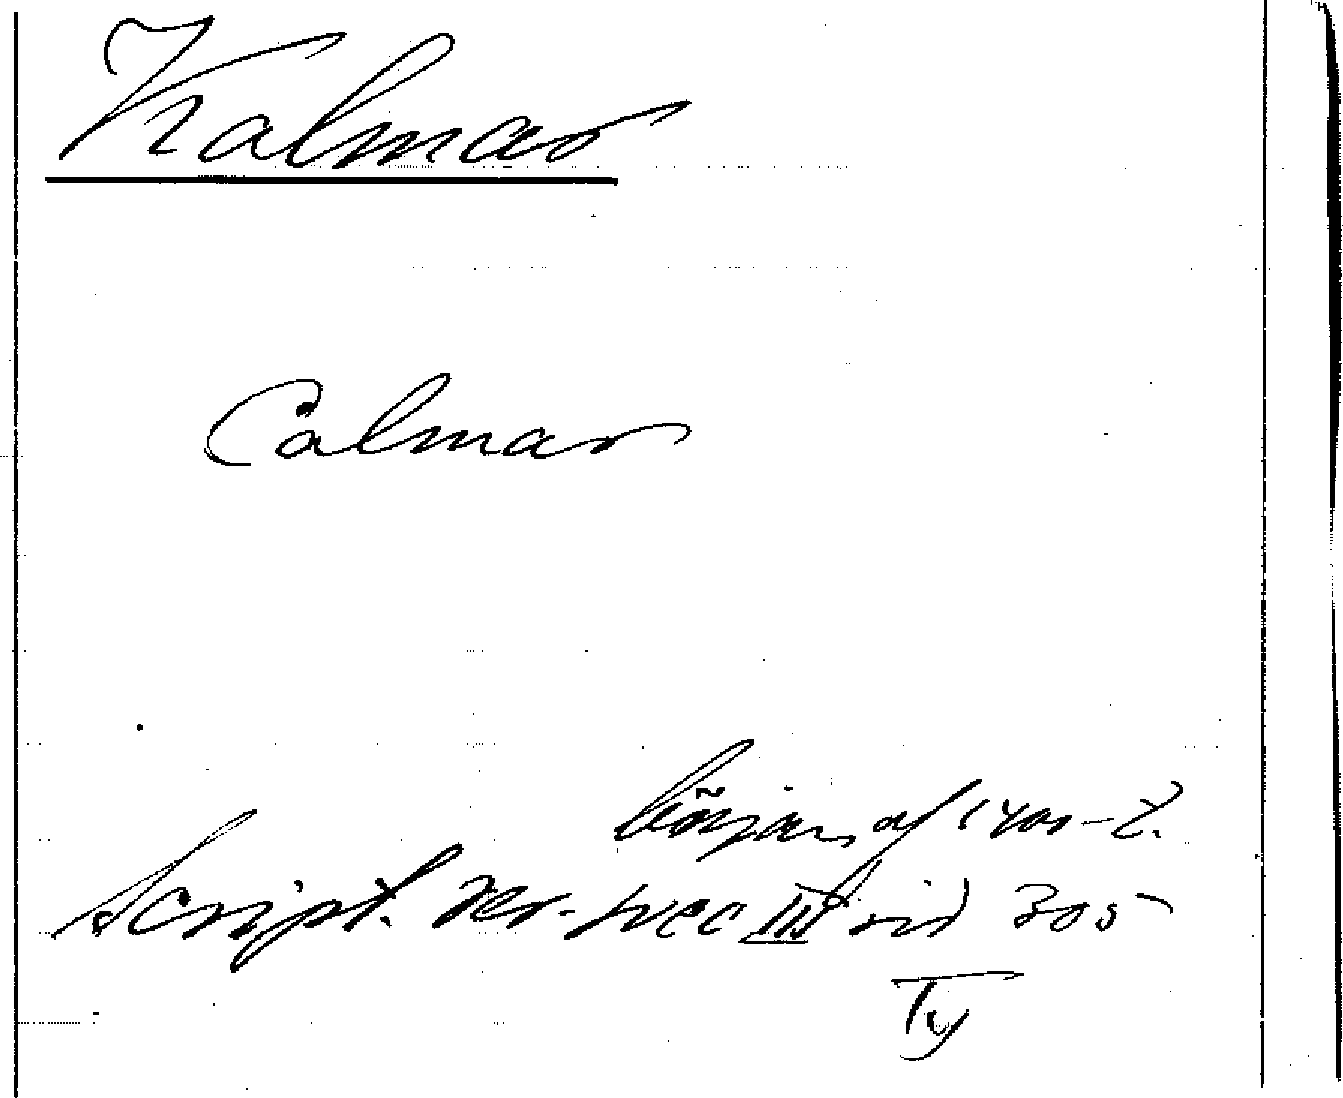 Kalmar
Calmar
början af 1400-t.
Script. rer. svec III sid 305
Ty